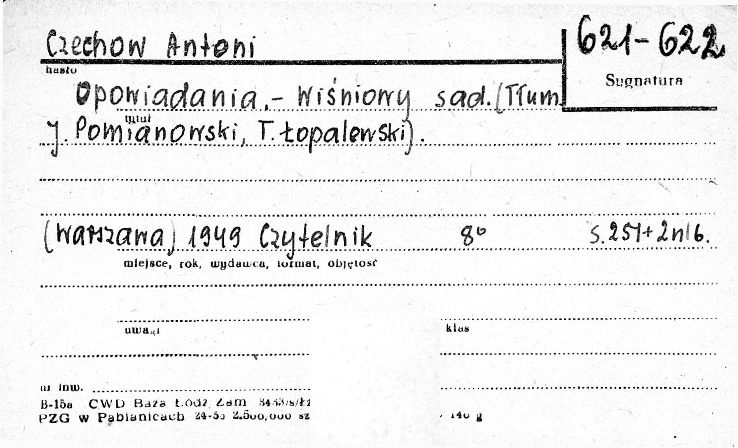 Czechow Antoni
621-622
hasło
Sygnatura
Opowiadania.- Wiśniowy sad. (Tłum.
tytuł
J. Pomianowski, T. Łopalewski).
(Warszawa) 1949 Czytelnik 8° s. 251+2nlb.
miejsce, rok, wydawca, format, objętość
uwagi
klas
nr inw.
B-15a CWD Baza Łódź Zam
PZG w Pabianicach 24-55 2.500,000 sz
140 g